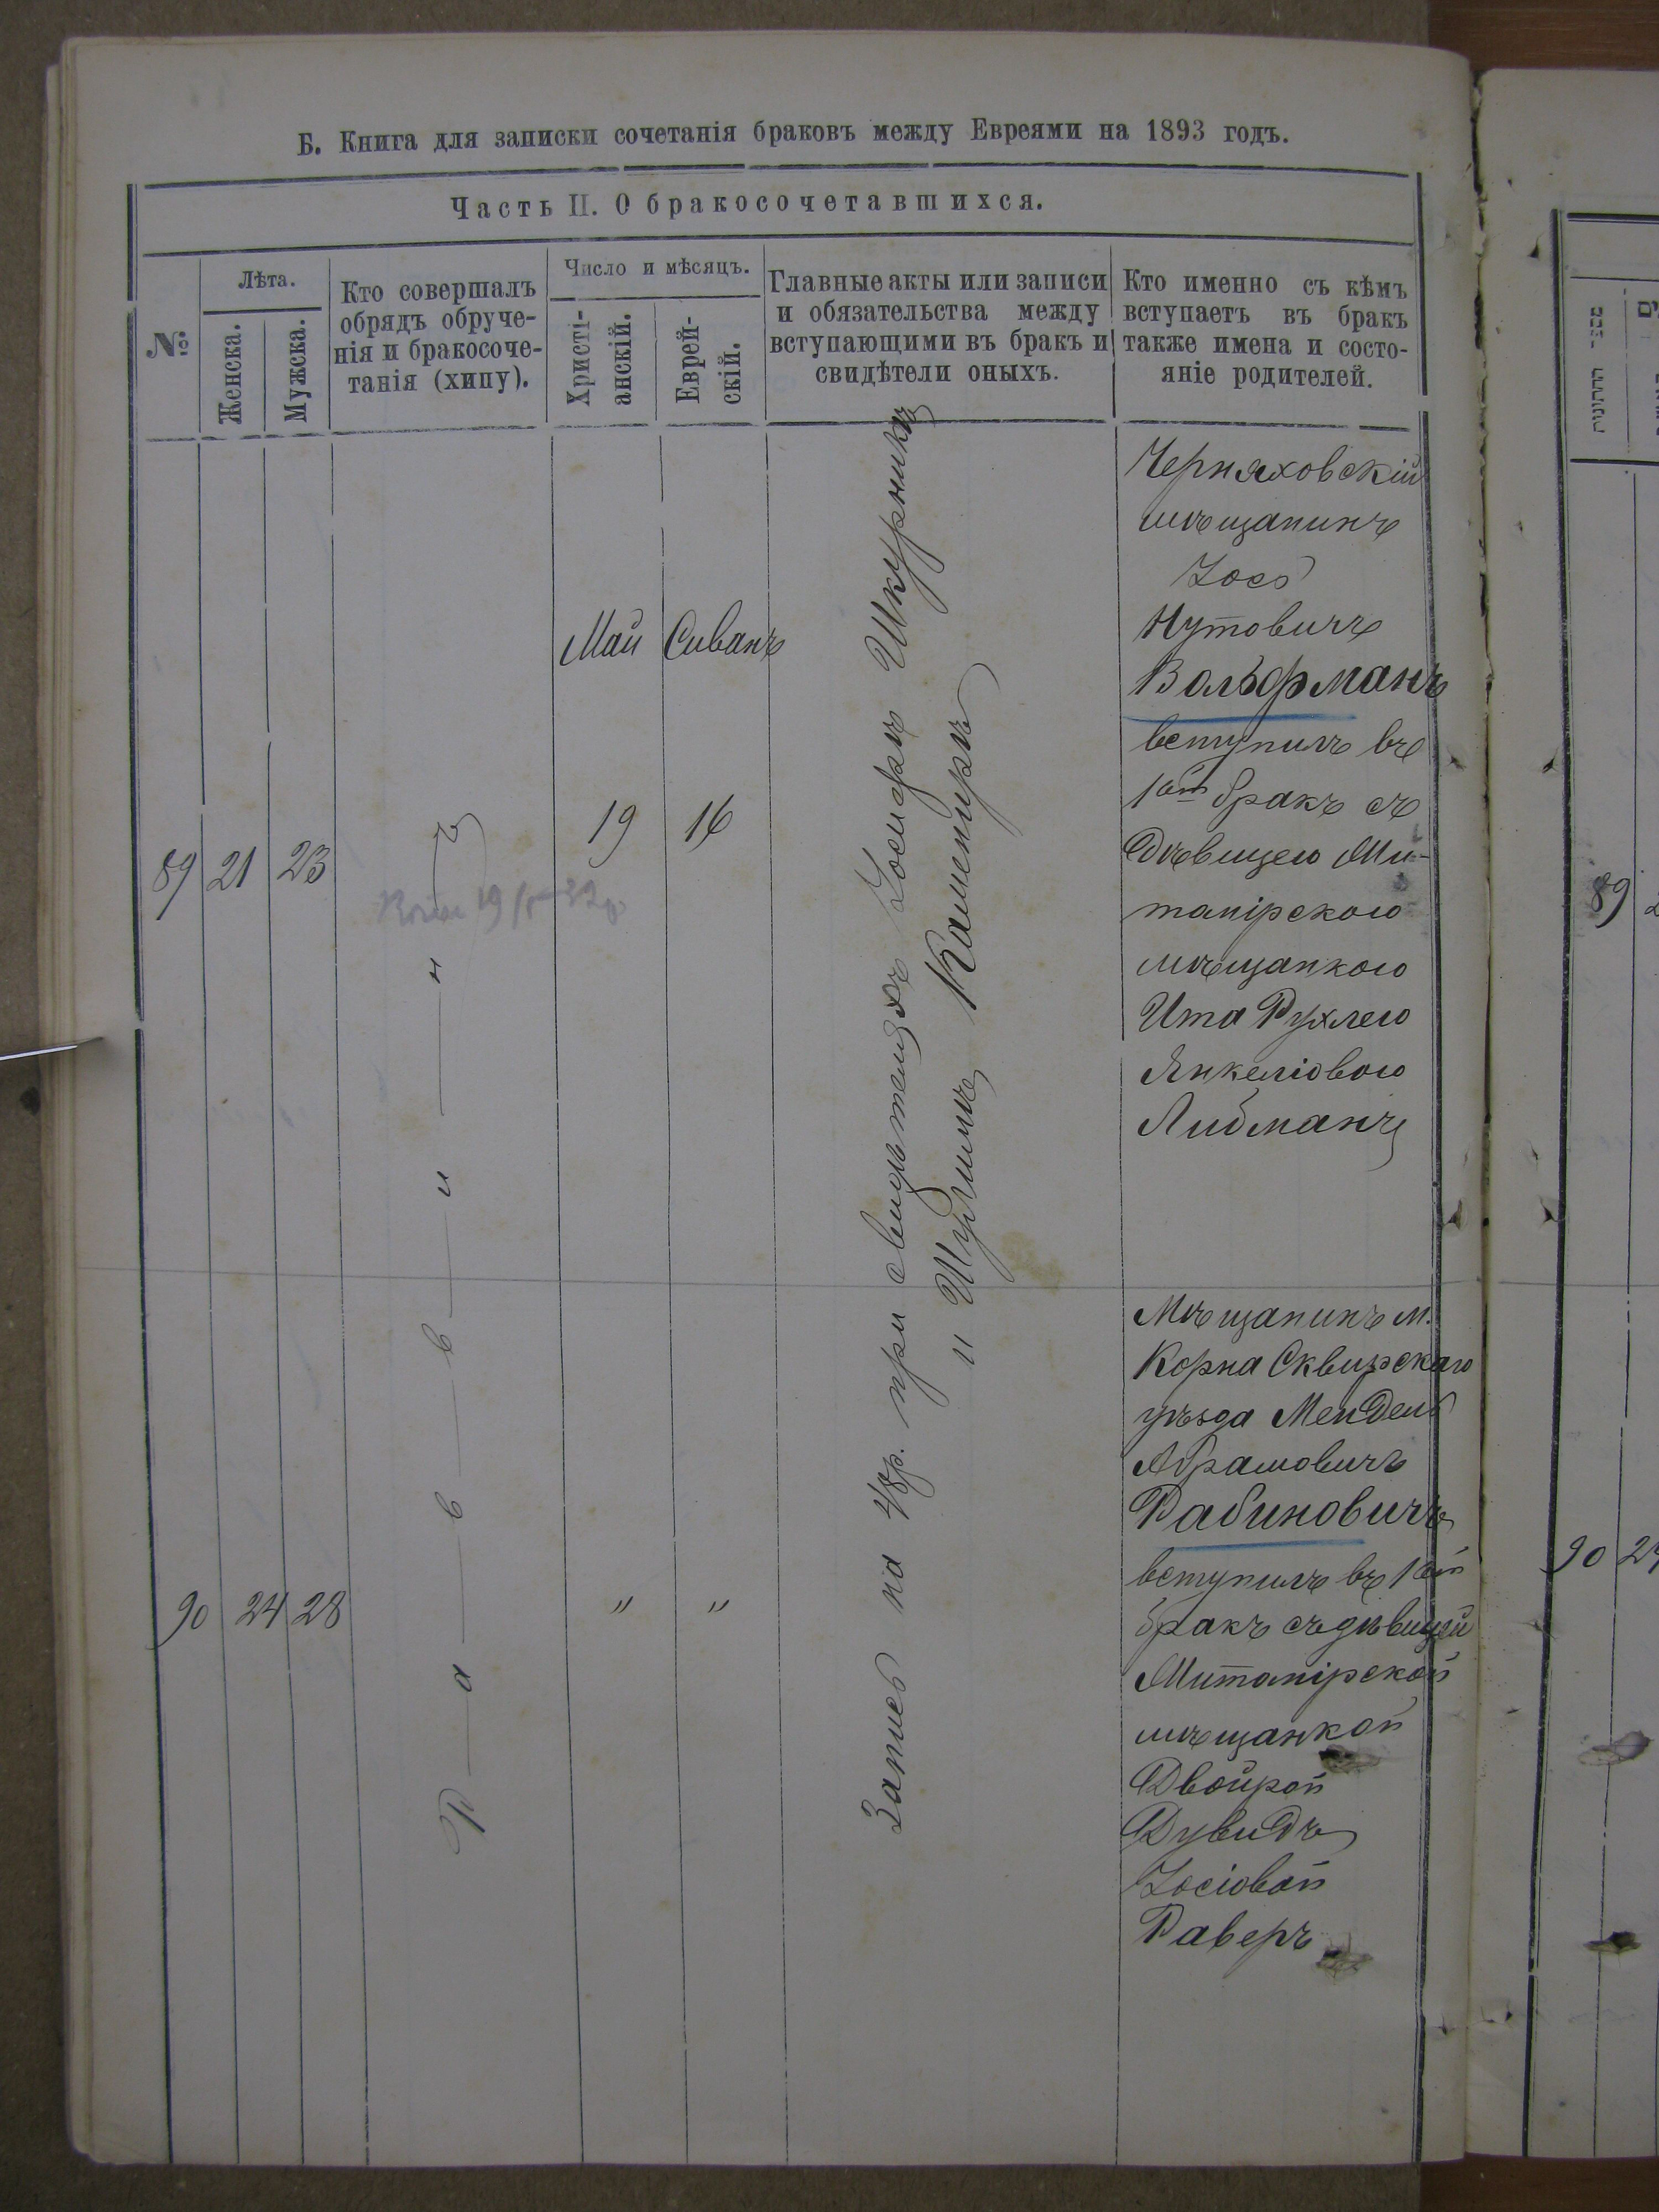 Б. Книга для записки сочетанія браковъ между Евреями на 1893 годъ.
Часть II. О бракосочетавшихся.
№
Лѣта.
Женска.
Мужска.
Кто совершалъ
обрядъ обруче-
нія и бракосоче-
танія (хипу).
Число и мѣсяцъ.
Христі-
анскій.
Еврей-
скій.
Главные акты или записи
и обязательства между
вступающими въ бракъ и
свидѣтели оныхъ.
Кто именно съ кѣмъ
вступаетъ въ бракъ
также имена и состо-
яніе родителей.
Р — а — в — в — и — н — ъ
Май Сиванъ
89 21 23
19 16
Запись на 48р. при свидѣтеляхъ Іосифъ Шкурникъ
и Шулимъ Камениръ
Черняховскій
мѣщанинъ
Іось
Нутовичъ
Вольфманъ
вступилъ въ
1ый бракъ съ
Дѣвицею Жи-
томірскою
мѣщанкою
Ита Рухлею
Янкеліовою
Либманъ
90 24 28
" "
Мѣщанинъ м.
Корна Сквирскаго
уѣзда Мендель
Абрамовичъ
Рабиновичъ
вступилъ въ 1ый
бракъ съ дѣвицей
Житомірской
мѣщанкой
Двойрой
Дувидъ
Іосіовой
Раверъ
89
90 24